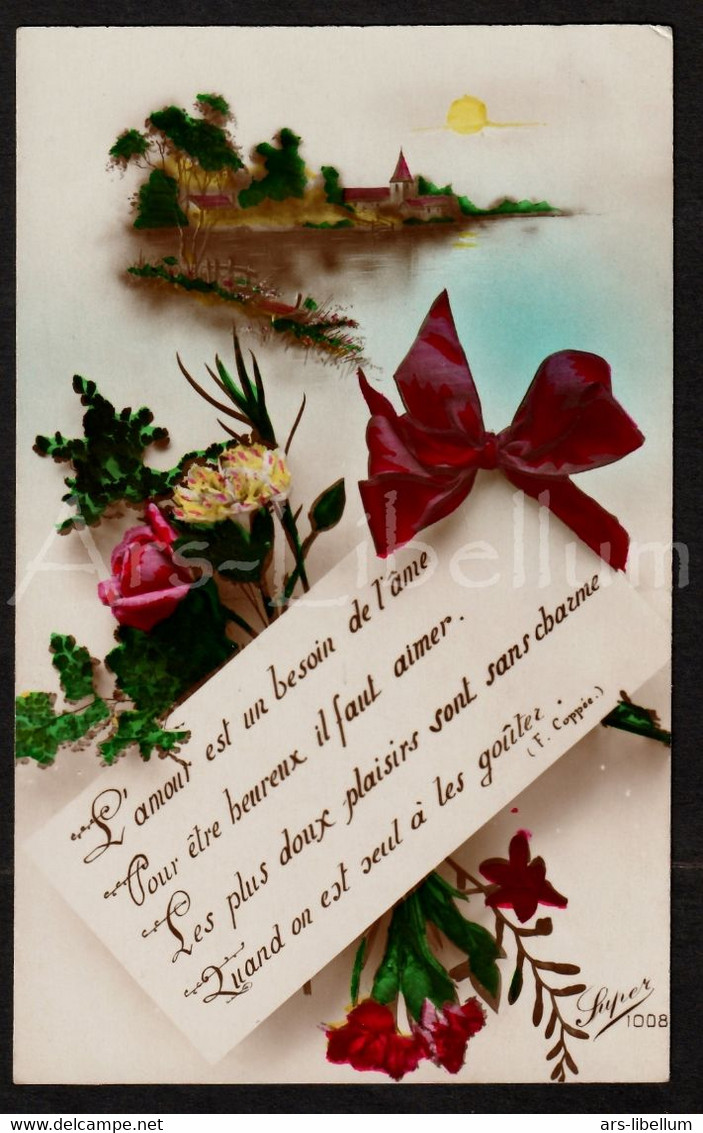 L'amour est un besoin de l'âme
Pour être heureux il faut aimer.
Les plus doux plaisirs sont sans charme
Quand on est seul à les goûter.
(F. Coppée.)
Super
1008
Ars-Libellum
ars-libellum